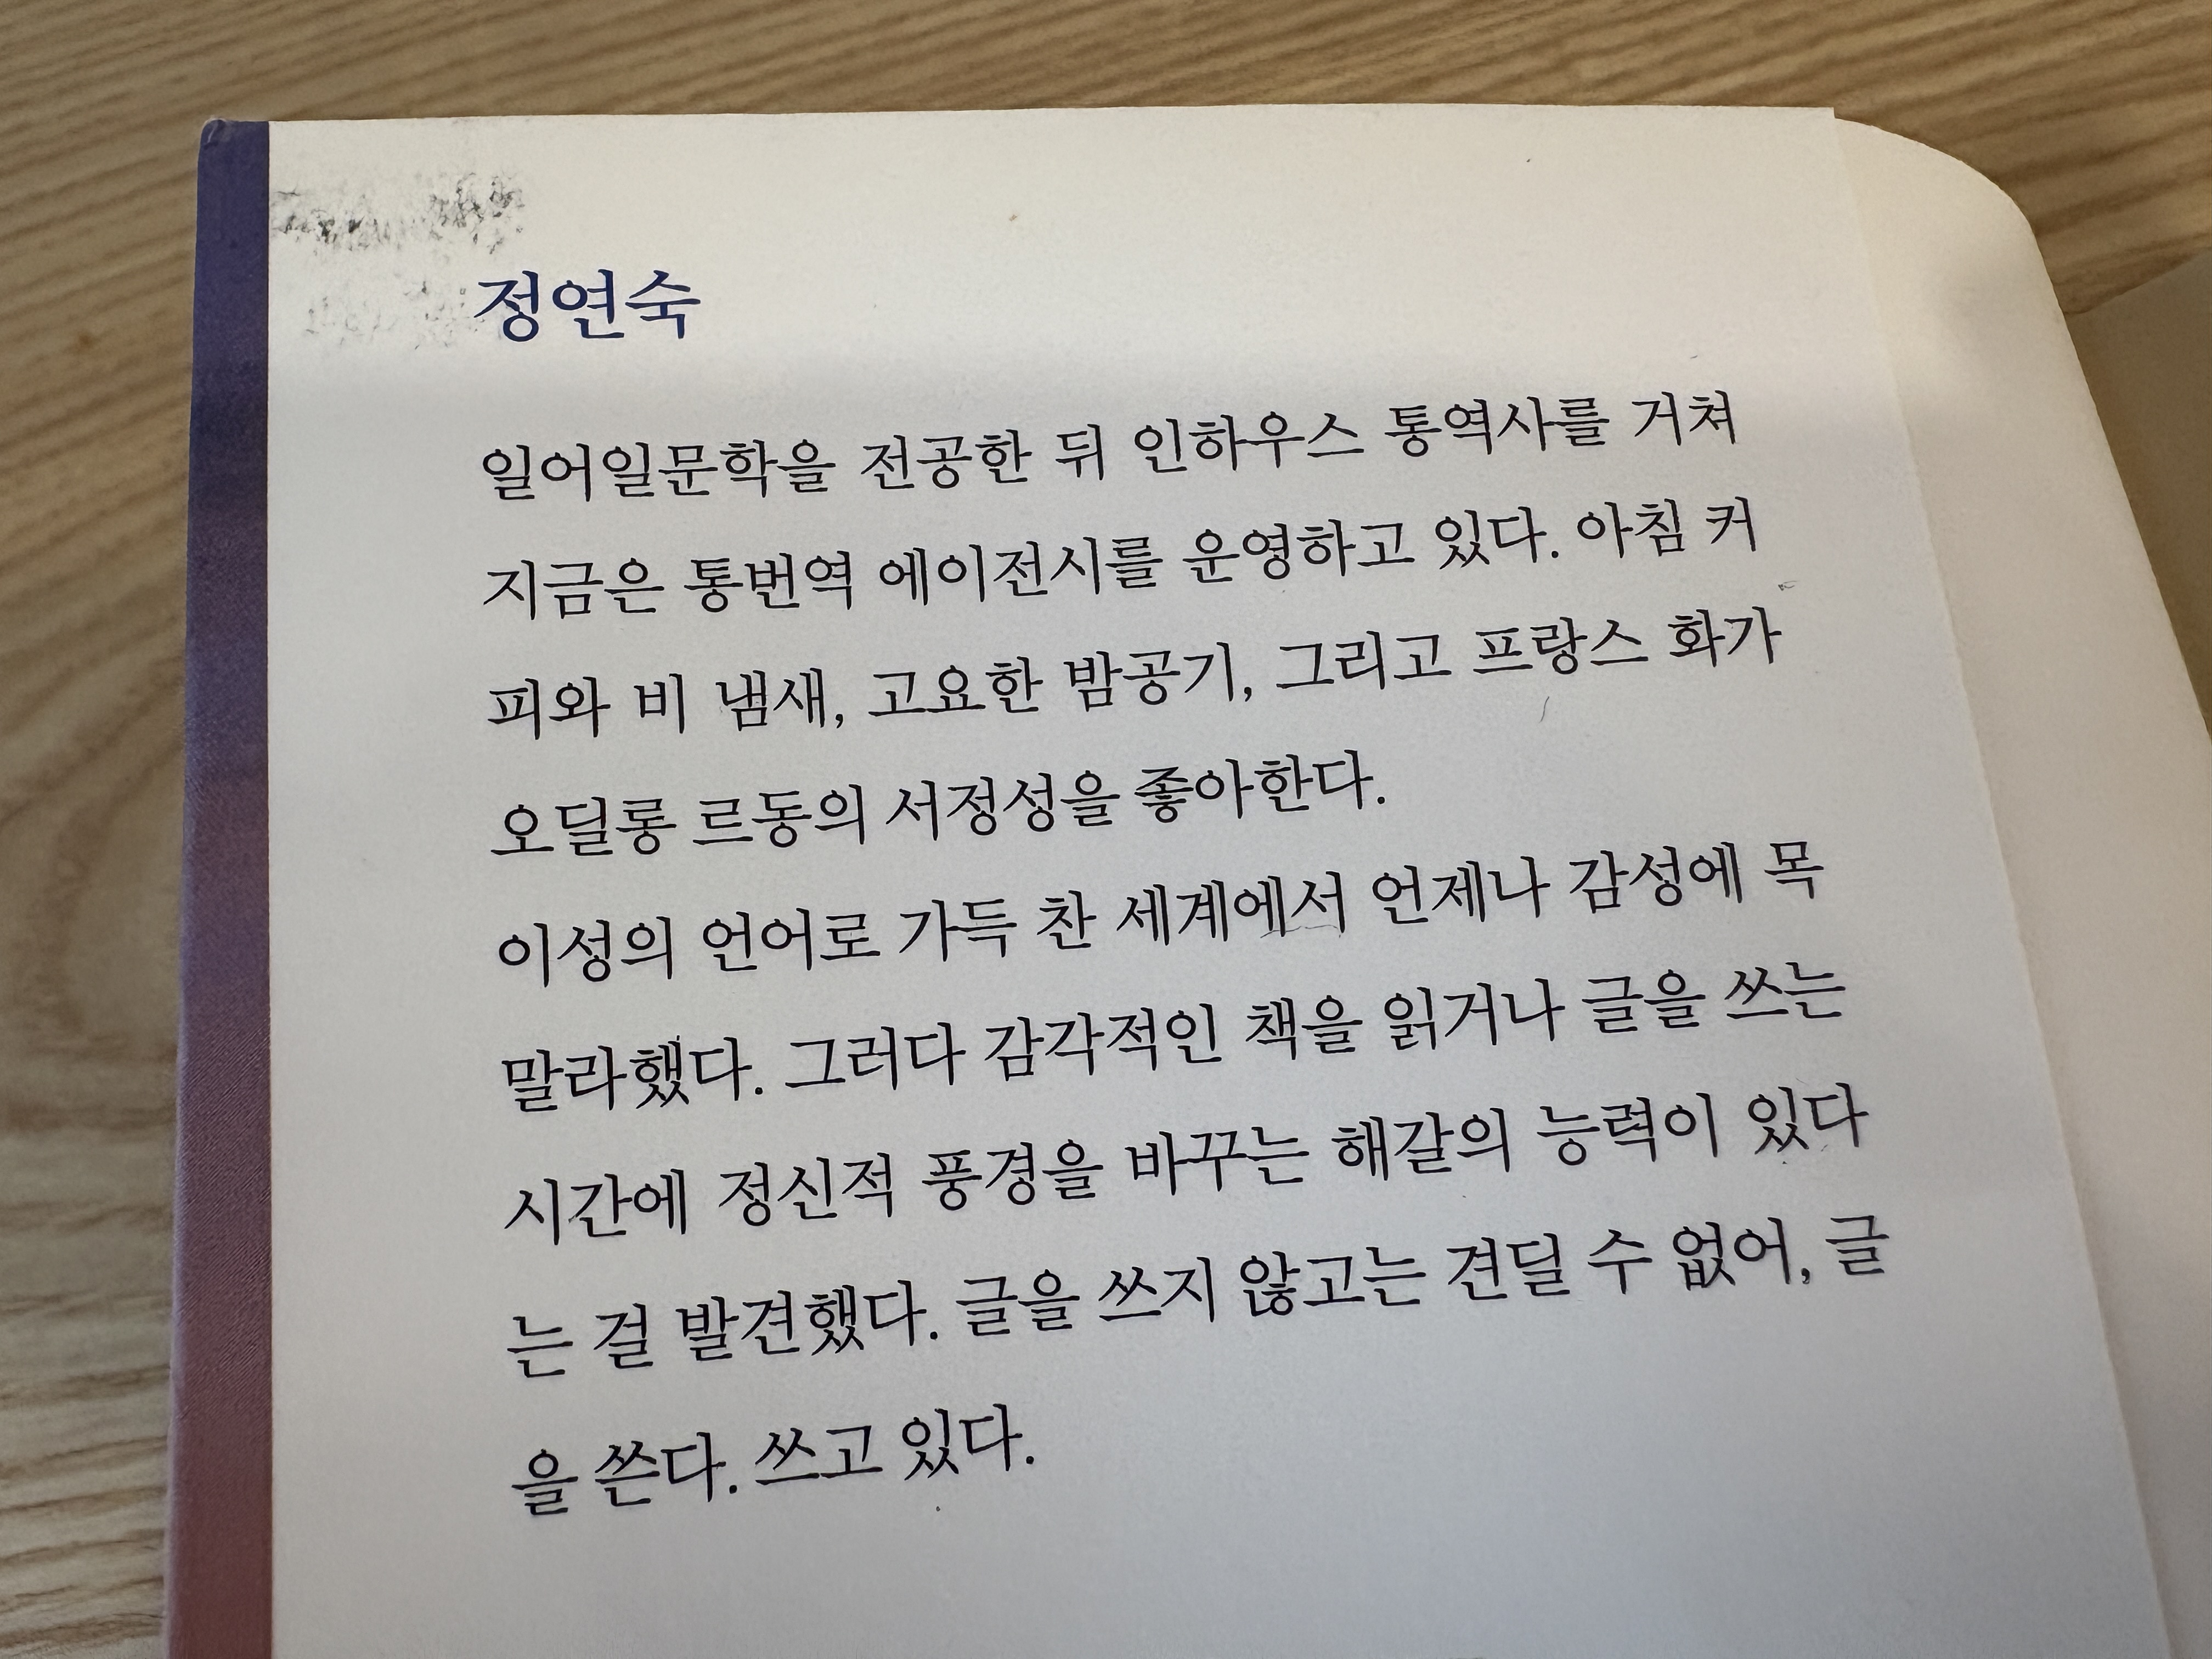 정연숙
일어일문학을 전공한 뒤 인하우스 통역사를 거쳐
지금은 통번역 에이전시를 운영하고 있다. 아침 커
피와 비 냄새, 고요한 밤공기, 그리고 프랑스 화가
오딜롱 르동의 서정성을 좋아한다.
이성의 언어로 가득 찬 세계에서 언제나 감성에 목
말라했다. 그러다 감각적인 책을 읽거나 글을 쓰는
시간에 정신적 풍경을 바꾸는 해갈의 능력이 있다
는 걸 발견했다. 글을 쓰지 않고는 견딜 수 없어, 글
을 쓴다. 쓰고 있다.